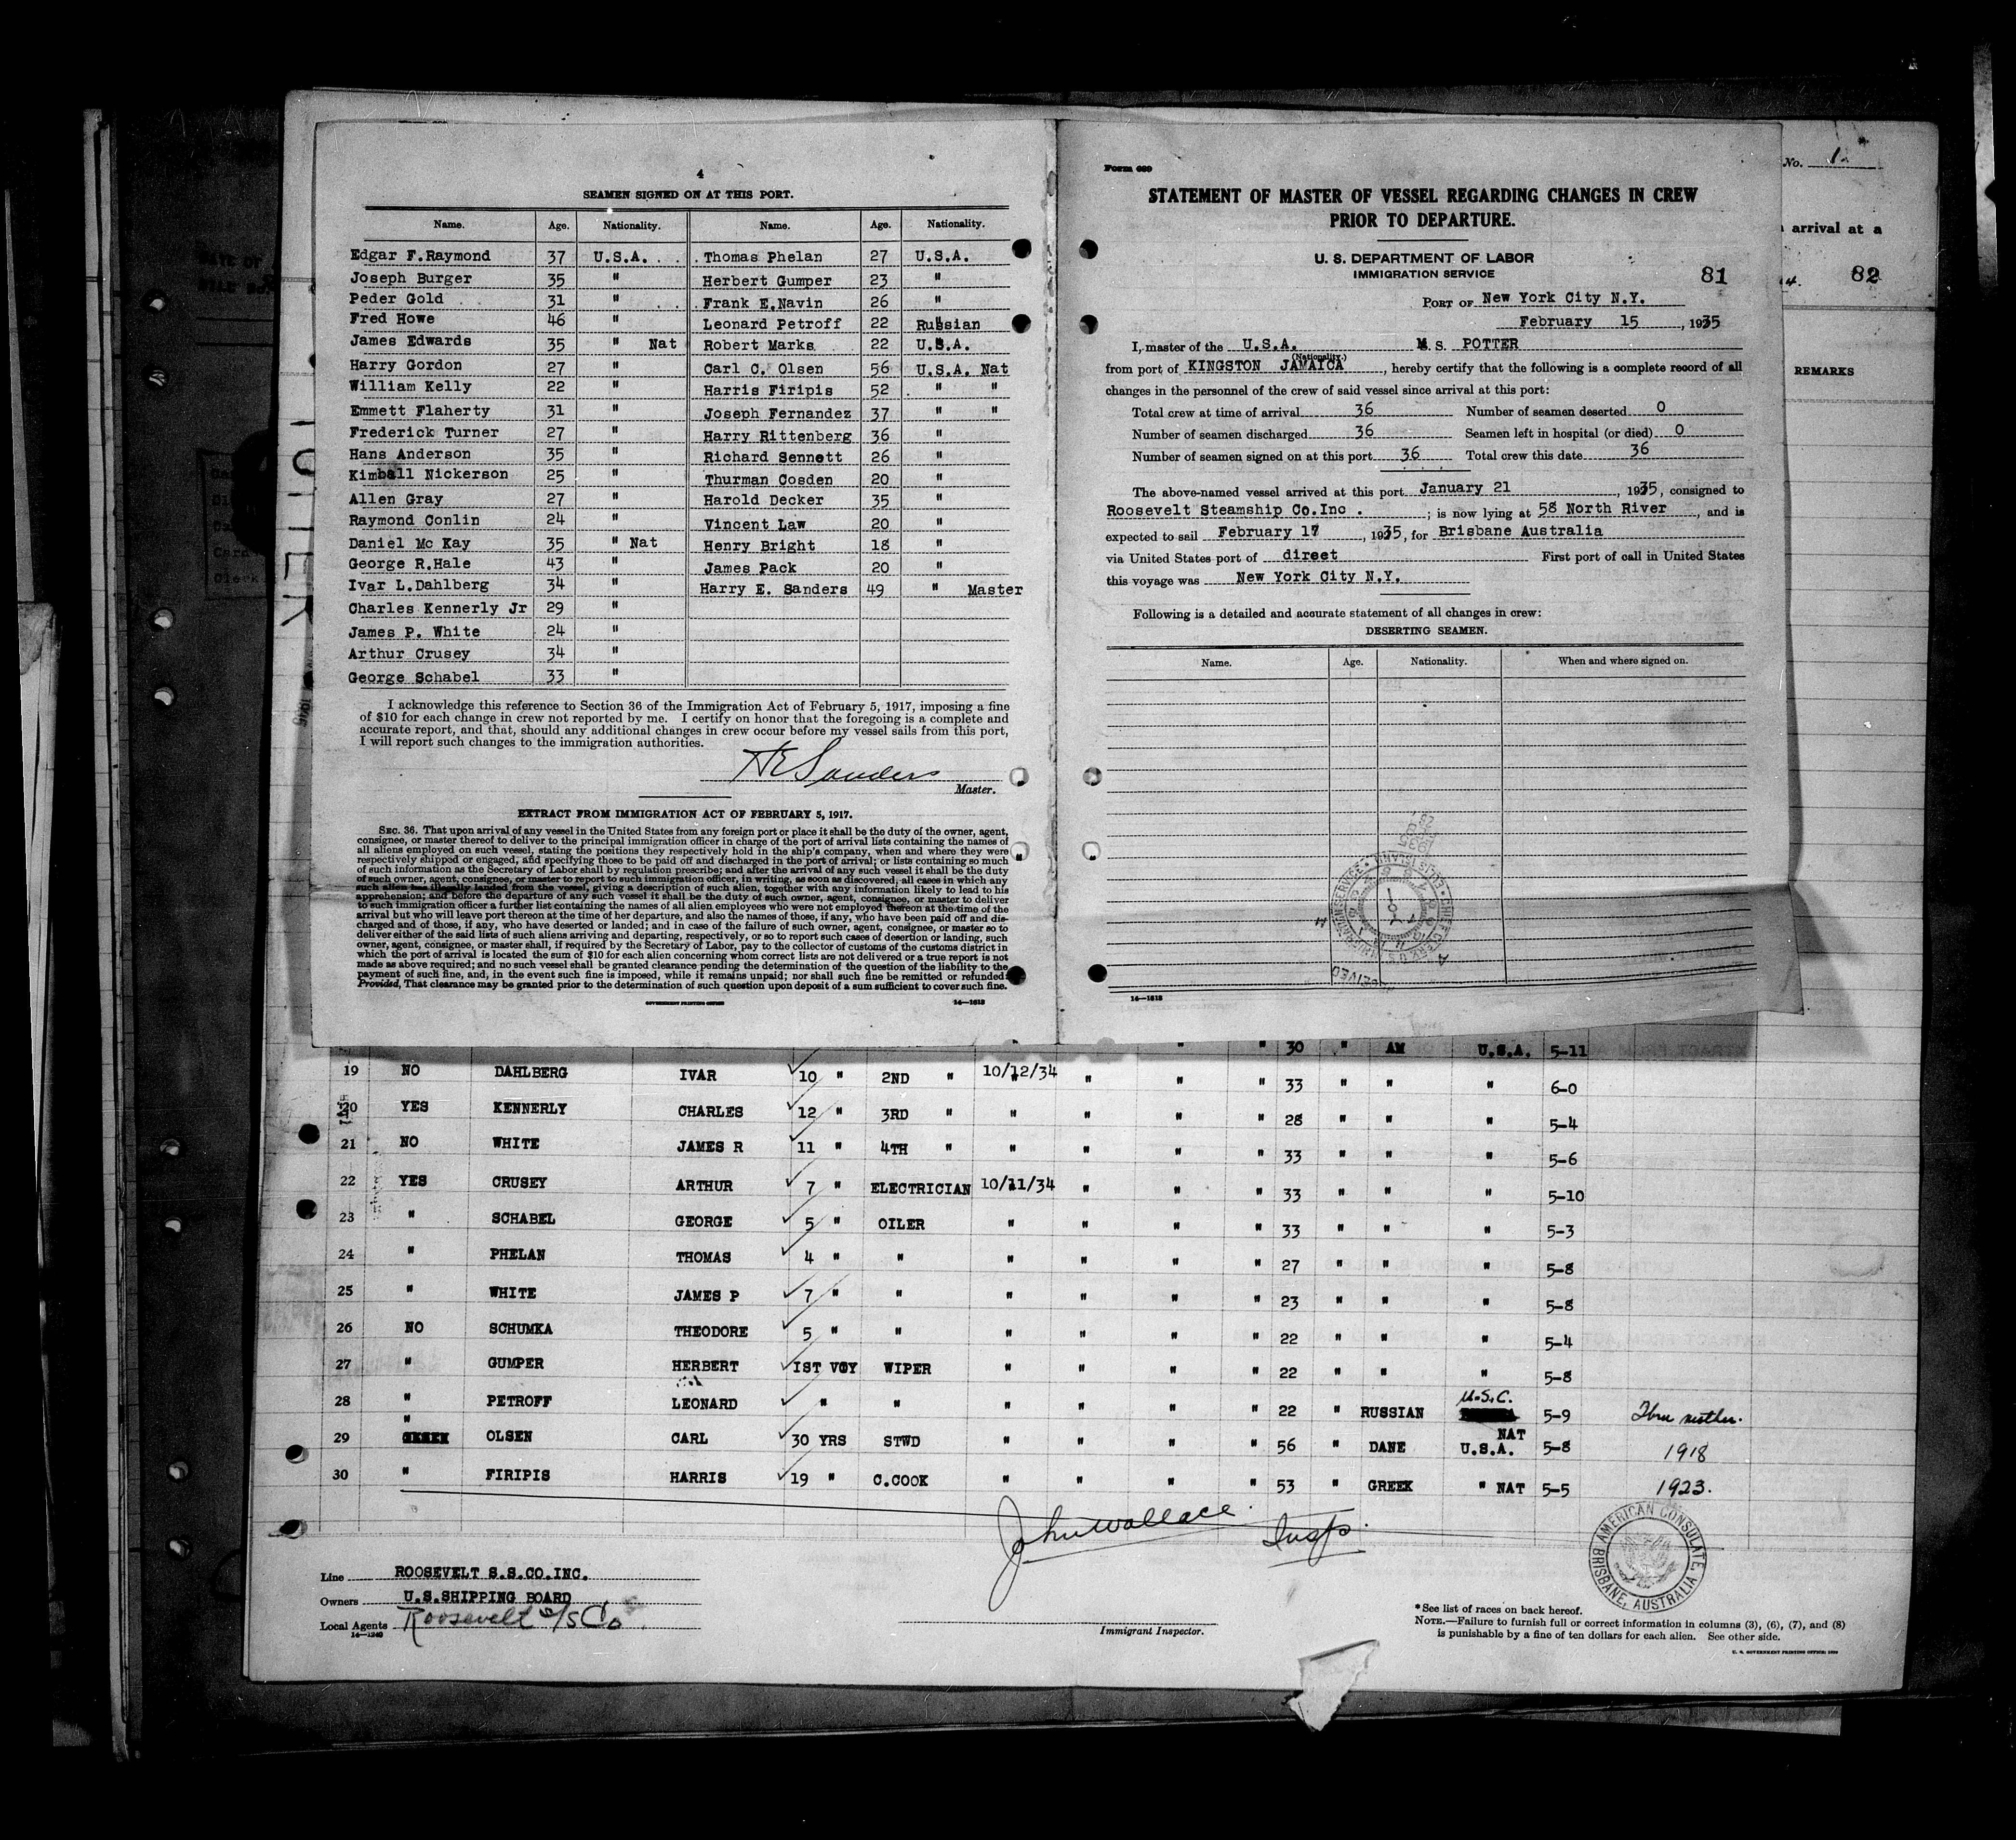 4
SEAMEN SIGNED ON AT THIS PORT.
Name. Age. Nationality. Name. Age. Nationality.
Edgar F.Raymond 37 U.S.A. Thomas Phelan 27 U.S.A.
Joseph Burger 35 " Herbert Gumper 23 "
Peder Gold 31 " Frank E.Navin 26 "
Fred Howe 46 " Leonard Petroff 22 Russian
James Edwards 35 " Nat Robert Marks 22 U.S.A.
Harry Gordon 27 " Carl C. Olsen 56 U.S.A. Nat
William Kelly 22 " Harris Firipis 52 " "
Emmett Flaherty 31 " Joseph Fernandez 37 " "
Frederick Turner 27 " Harry Rittenberg 36 "
Hans Anderson 35 " Richard Sennett 26 "
Kimball Nickerson 25 " Thurman Cosden 20 "
Allen Gray 27 " Harold Decker 35 "
Raymond Conlin 24 " Vincent Law 20 "
Daniel Mc Kay 35 " Nat Henry Bright 18 "
George R.Hale 43 " James Pack 20 "
Ivar L.Dahlberg 34 " Harry E. Sanders 49 " Master
Charles Kennerly Jr 29 "
James P. White 24 "
Arthur Crusey 34 "
George Schabel 33 "
I acknowledge this reference to Section 36 of the Immigration Act of February 5, 1917, imposing a fine
of $10 for each change in crew not reported by me. I certify on honor that the foregoing is a complete and
accurate report, and that, should any additional changes in crew occur before my vessel sails from this port,
I will report such changes to the immigration authorities.
HE Sanders
Master.
EXTRACT FROM IMMIGRATION ACT OF FEBRUARY 5, 1917.
SEC. 36. That upon arrival of any vessel in the United States from any foreign port or place it shall be the duty of the owner, agent,
consignee, or master thereof to deliver to the principal immigration officer in charge of the port of arrival lists containing the names of
all aliens employed on such vessel, stating the positions they respectively hold in the ship's company, when and where they were
respectively shipped or engaged, and specifying those to be paid off and discharged in the port of arrival; or lists containing so much
of such information as the Secretary of Labor shall by regulation prescribe; and after the arrival of any such vessel it shall be the duty
of such owner, agent, consignee, or master to report to such immigration officer, in writing, as soon as discovered, all cases in which any
such alien has illegally landed from the vessel, giving a description of such alien, together with any information likely to lead to his
apprehension; and before the departure of any such vessel it shall be the duty of such owner, agent, consignee, or master to deliver
to such immigration officer a further list containing the names of all alien employees who were not employed thereon at the time of the
arrival but who will leave port thereon at the time of her departure, and also the names of those, if any, who have been paid off and dis-
charged and of those, if any, who have deserted or landed; and in case of the failure of such owner, agent, consignee, or master so to
deliver either of the said lists of such aliens arriving and departing, respectively, or so to report such cases of desertion or landing, such
owner, agent, consignee, or master shall, if required by the Secretary of Labor, pay to the collector of customs of the customs district in
which the port of arrival is located the sum of $10 for each alien concerning whom correct lists are not delivered or a true report is not
made as above required; and no such vessel shall be granted clearance pending the determination of the question of the liability to the
payment of such fine, and, in the event such fine is imposed, while it remains unpaid; nor shall such fine be remitted or refunded:
Provided, That clearance may be granted prior to the determination of such question upon deposit of a sum sufficient to cover such fine.
GOVERNMENT PRINTING OFFICE 14—1618
Form 689
STATEMENT OF MASTER OF VESSEL REGARDING CHANGES IN CREW
PRIOR TO DEPARTURE.
U. S. DEPARTMENT OF LABOR
IMMIGRATION SERVICE
81
PORT OF New York City N.Y.
February 15, 1935
I, master of the U.S.A. M.S. POTTER
(Nationality.)
from port of KINGSTON JAMAICA, hereby certify that the following is a complete record of all
changes in the personnel of the crew of said vessel since arrival at this port:
Total crew at time of arrival 36 Number of seamen deserted 0
Number of seamen discharged 36 Seamen left in hospital (or died) 0
Number of seamen signed on at this port 36 Total crew this date 36
The above-named vessel arrived at this port January 21, 1935, consigned to
Roosevelt Steamship Co.Inc . ; is now lying at 58 North River, and is
expected to sail February 17, 1935, for Brisbane Australia
via United States port of direct First port of call in United States
this voyage was New York City N.Y.
Following is a detailed and accurate statement of all changes in crew:
DESERTING SEAMEN.
Name. Age. Nationality. When and where signed on.
14—1618
No. 1
arrival at a
82
REMARKS
" " 30 " AM U.S.A. 5-11
19 NO DAHLBERG IVAR 10 " 2ND " 10/12/34 " " " 33 " " " 6-0
20 YES KENNERLY CHARLES 12 " 3RD " " " " " 28 " " " 5-4
21 NO WHITE JAMES R 11 " 4TH " " " " " 33 " " " 5-6
22 YES CRUSEY ARTHUR 7 " ELECTRICIAN 10/11/34 " " " 33 " " " 5-10
23 " SCHABEL GEORGE 5 " OILER " " " " 33 " " " 5-3
24 " PHELAN THOMAS 4 " " " " " " 27 " " " 5-8
25 " WHITE JAMES P 7 " " " " " " 23 " " " 5-8
26 NO SCHUMKA THEODORE 5 " " " " " " 22 " " " 5-4
27 " GUMPER HERBERT IST VOY WIPER " " " " 22 " " " 5-8
28 " PETROFF LEONARD " " " " " " 22 " RUSSIAN U.S.C. 5-9 Thru mother.
29 " OLSEN CARL 30 YRS STWD " " " " 56 " DANE U.S.A. NAT 5-8 1918
30 " FIRIPIS HARRIS 19 " C.COOK " " " " 53 " GREEK " NAT 5-5 1923.
John Wallace Insp.
Line ROOSEVELT S.S.CO.INC.
Owners U.S.SHIPPING BOARD
Local Agents Roosevelt S/S Co.
14—1240
Immigrant Inspector.
AMERICAN CONSULATE, BRISBANE, AUSTRALIA
*See list of races on back hereof.
NOTE.—Failure to furnish full or correct information in columns (3), (6), (7), and (8)
is punishable by a fine of ten dollars for each alien. See other side.